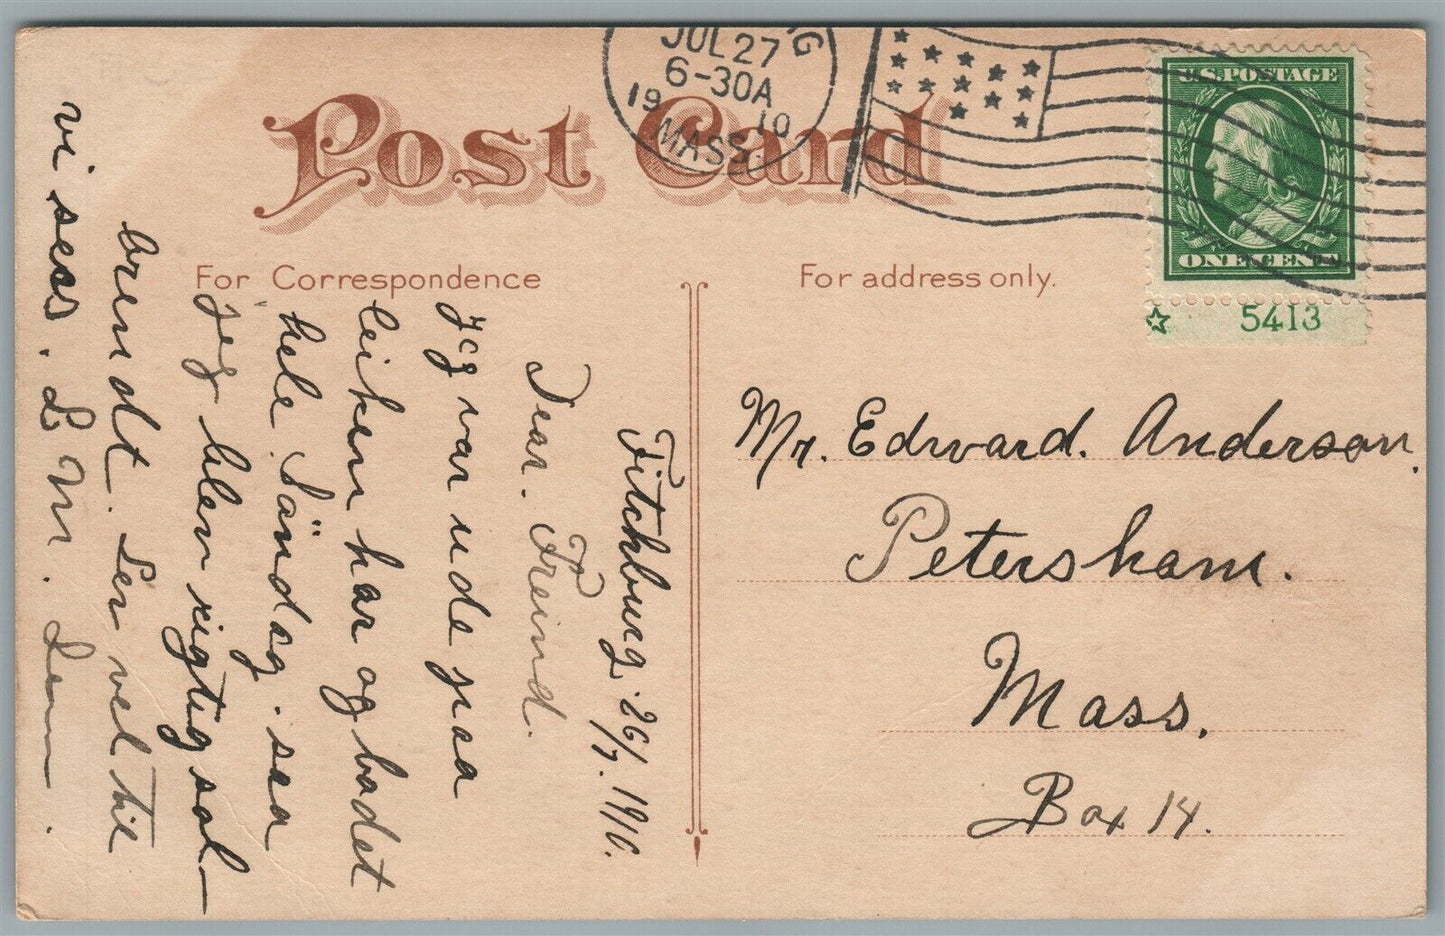 Post Card
JUL 27
6-30A
19 10
MASS.
U.S. POSTAGE
ONE CENT
5413
For Correspondence
For address only.
Fitchburg. 26/7. 1910.
Dear. Freind.
Jeg var ude paa
leiken har og badet
hele Sändag. saa
jeg blev rigtig sol-
brendt. Lev vel til
vi sees. L. M.
Mr. Edward. Anderson.
Petersham.
Mass.
Box 14.